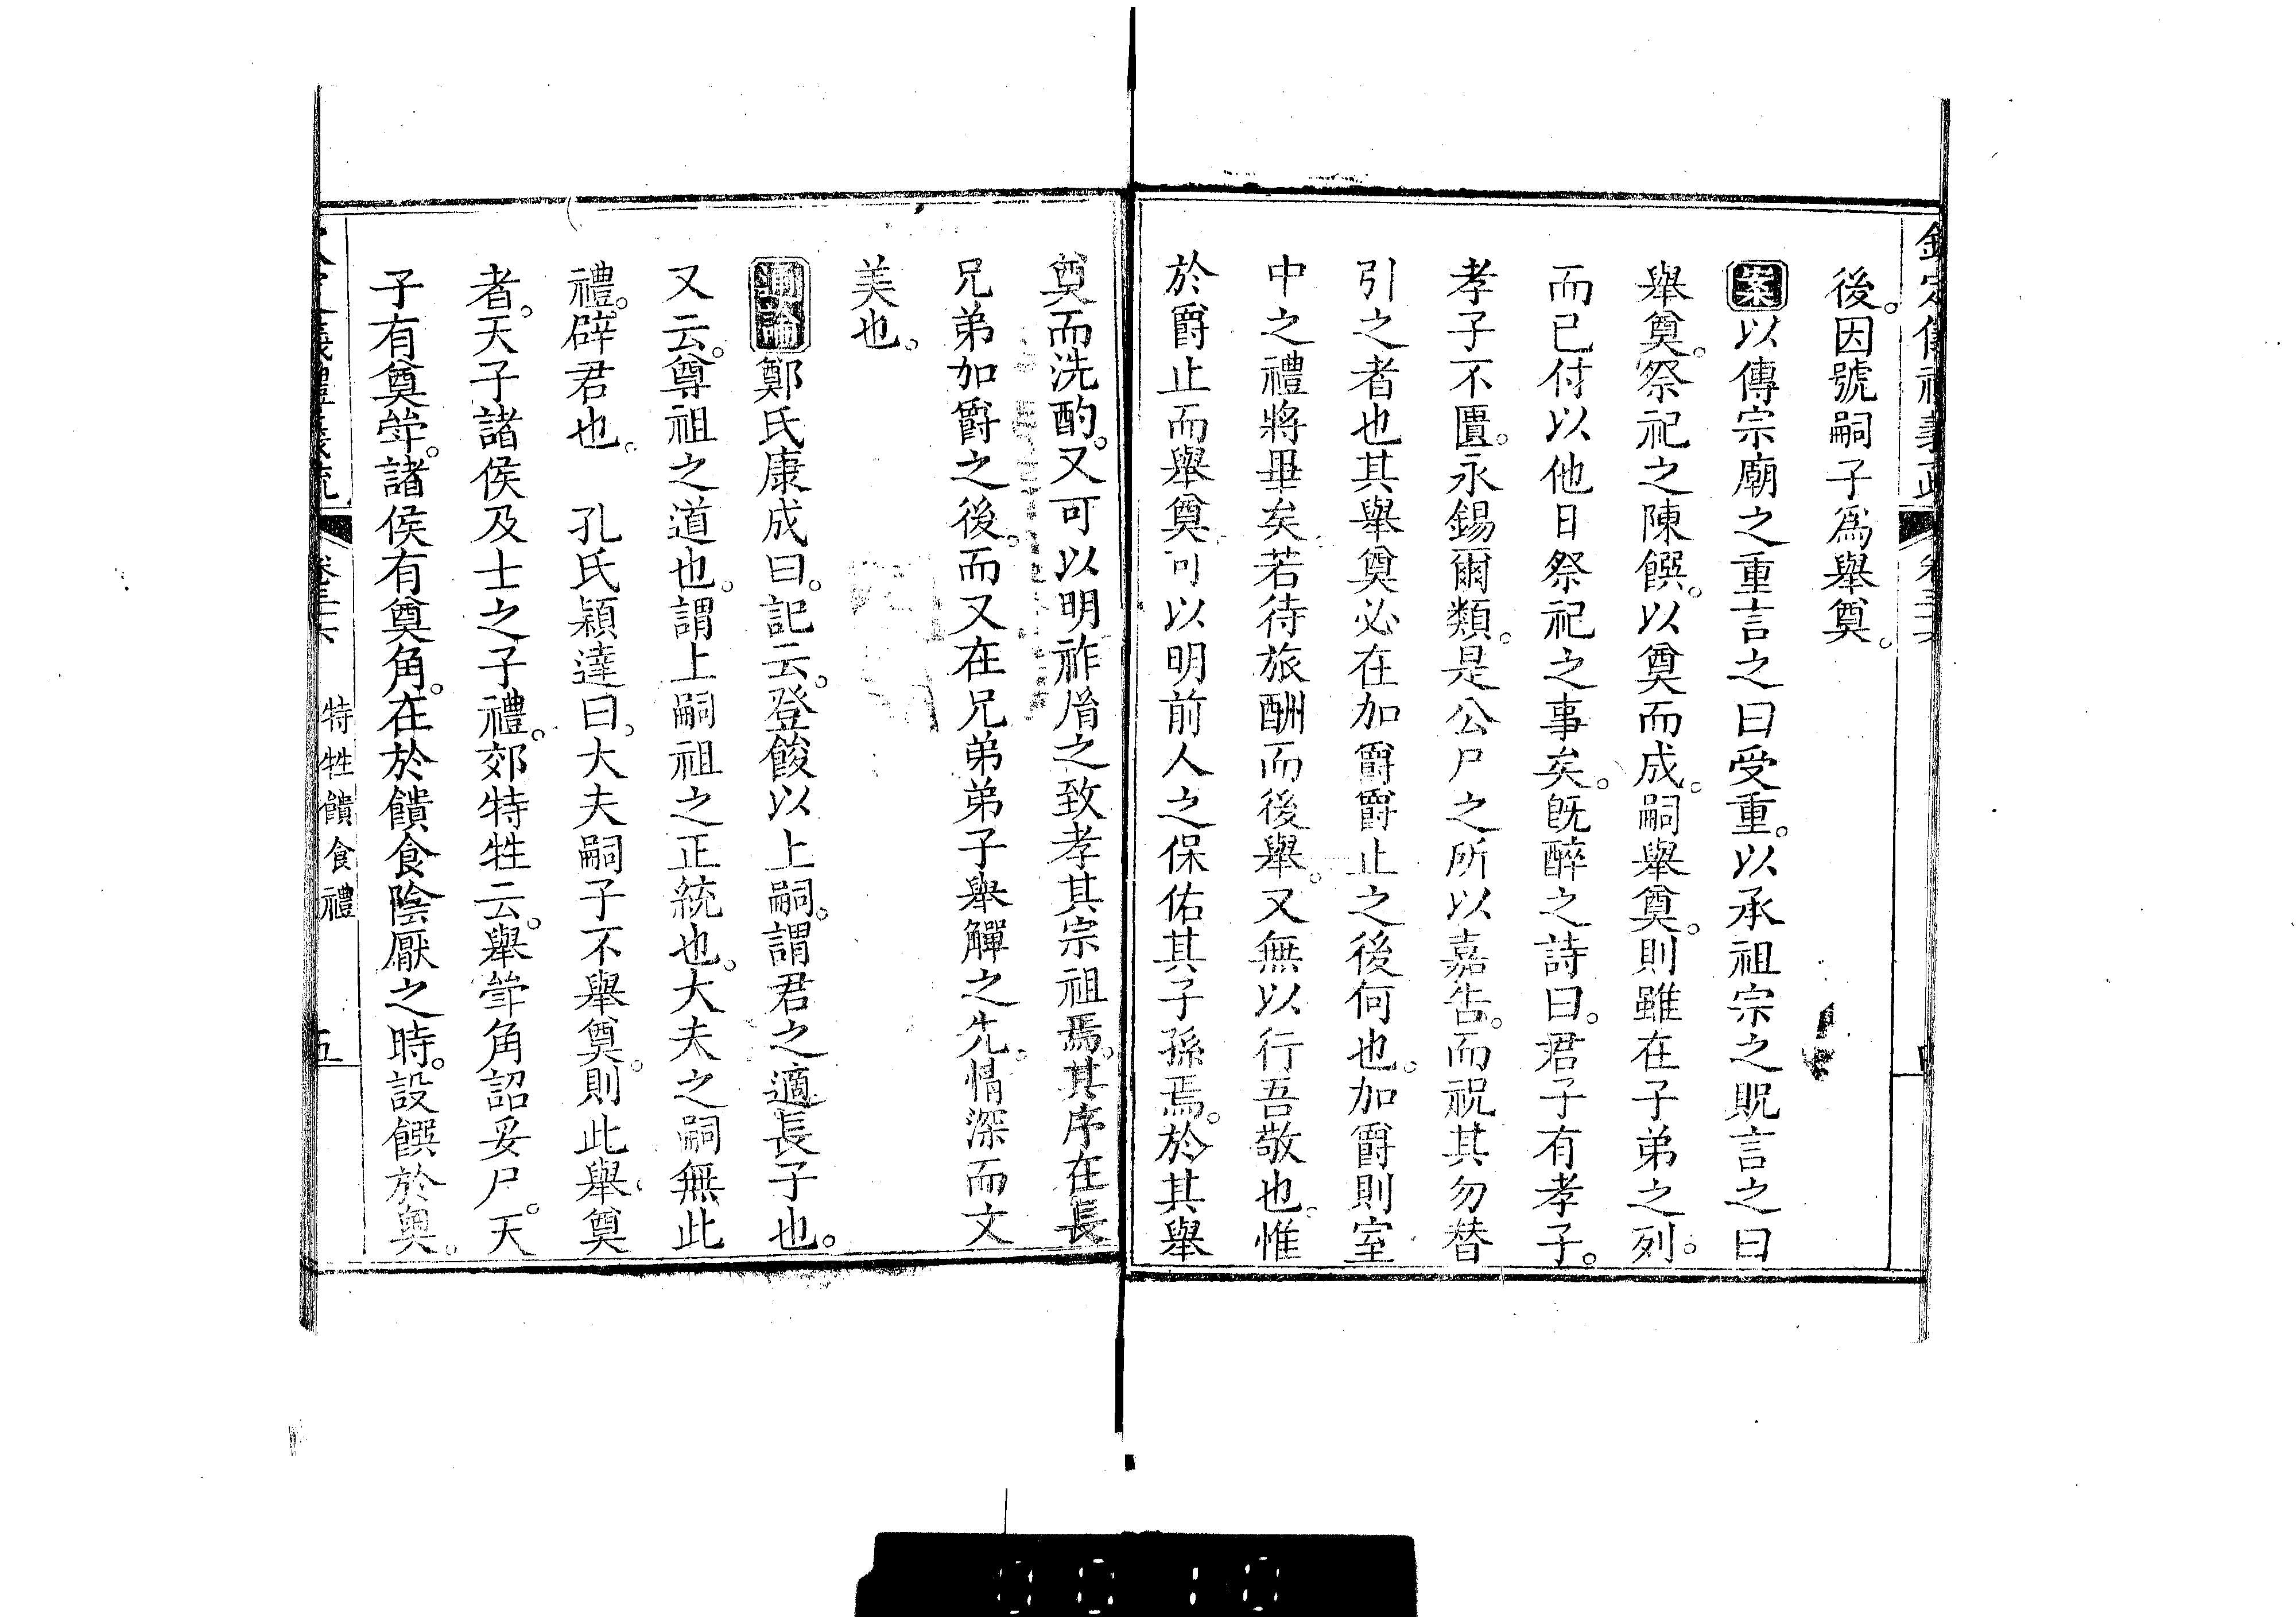 後。因號嗣子爲舉奠。
案以傳宗廟之重言之曰受重。以承祖宗之貺言之曰
舉奠。祭祀之陳饌。以奠而成。嗣舉奠。則雖在子弟之列。
而已付以他日祭祀之事矣。旣醉之詩曰。君子有孝子。
孝子不匱。永錫爾類。是公尸之所以嘉告。而祝其勿替
引之者也其舉奠必在加爵爵止之後何也。加爵則室
中之禮將畢矣。若待旅酬而後舉。又無以行吾敬也。惟
於爵止而舉奠。可以明前人之保佑其子孫焉。於其舉
奠而洗酌。又可以明祚胤之致孝其宗祖焉。其序在長
兄弟加爵之後。而又在兄弟弟子舉觶之先。情深而文
美也。
通論鄭氏康成曰。記云。登餕以上嗣。謂君之適長子也。
又云。尊祖之道也。謂上嗣祖之正統也。大夫之嗣無此
禮。辟君也。 孔氏穎達曰。大夫嗣子不舉奠。則此舉奠
者。天子諸侯及士之子禮。郊特牲云。舉斝角詔妥尸。天
子有奠斝。諸侯有奠角。在於饋食陰厭之時。設饌於奧。
特牲饋食禮
五